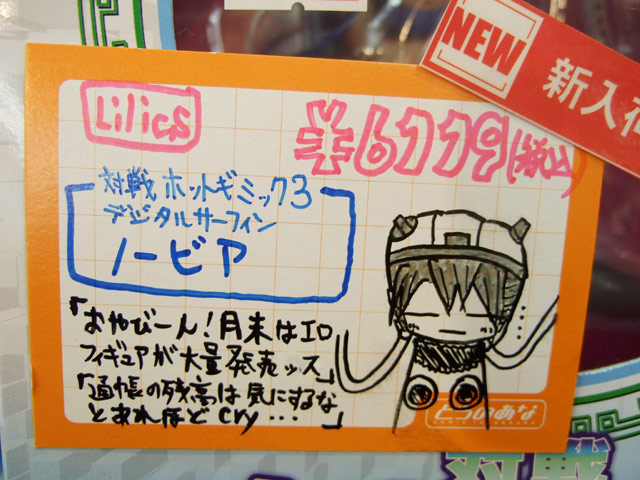 NEW
新入荷
Lilics
¥6779(税込)
対戦 ホットギミック3
デジタルサーフィン
ノービア
「おやびーん!月末はエロ
フィギュアが大量発売ッス」
「通帳の残高は気にするな
とあれほどcry…」
とらのあな
対戦